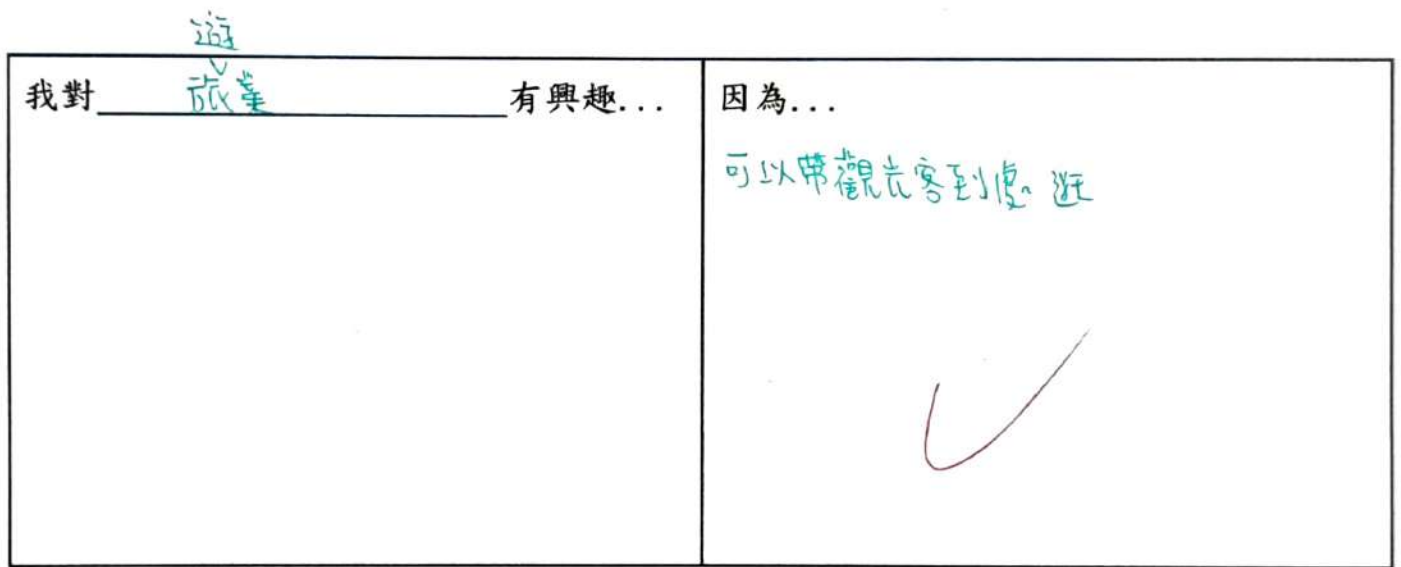 我對旅遊業有興趣...
因為...
可以帶觀光客到處逛